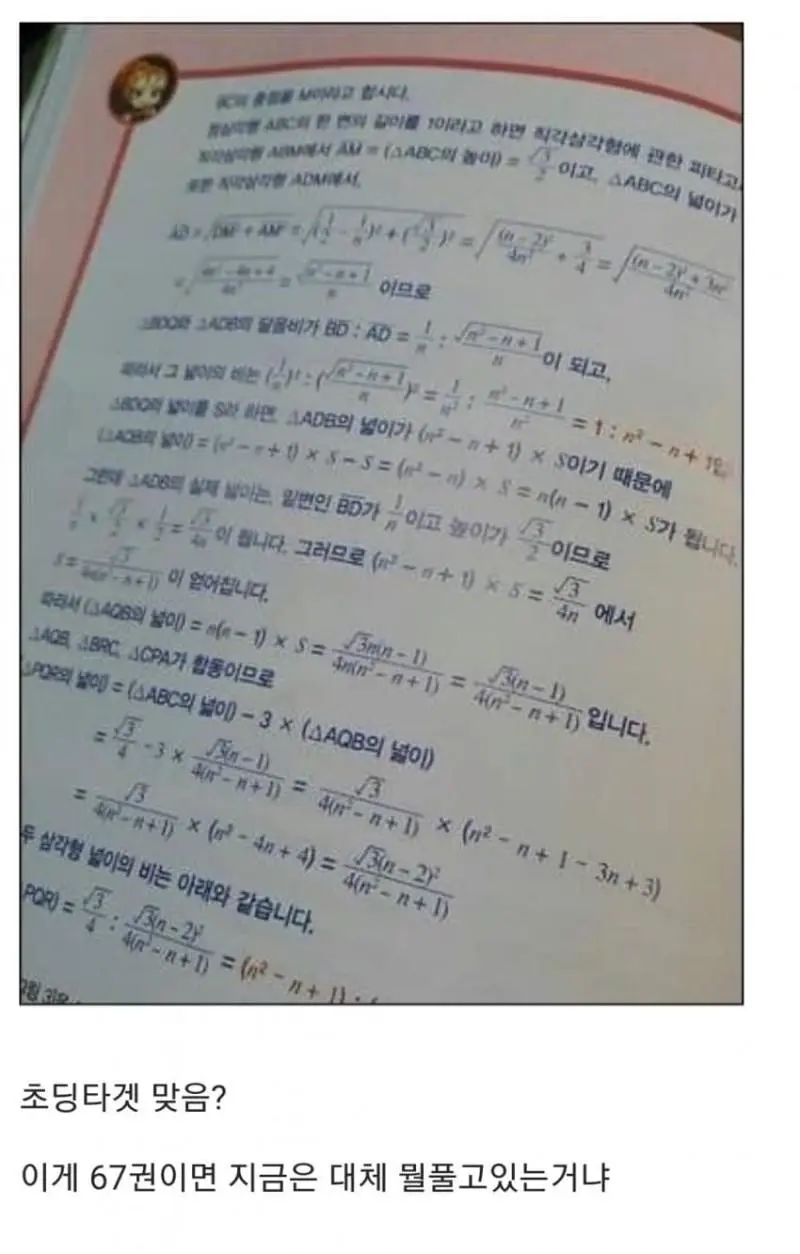 BC의 중점을 M이라고 합시다.
정삼각형 ABC의 한 변의 길이를 1이라고 하면 직각삼각형에 관한 피타고
직각삼각형 ABM에서 AM = (△ABC의 높이) = √3/2 이고, △ABC의 넓이가
또한 직각삼각형 ADM에서,
AD = √(DM² + AM²) = √((1/2 - 1/n)² + (√3/2)²) = √((n-2)²/4n² + 3/4) = √(((n-2)² + 3n²)/4n²)
= √((4n² - 4n + 4)/4n²) = √(n² - n + 1)/n 이므로
△BDQ와 △ADB의 닮음비가 BD : AD = 1/n : √(n² - n + 1)/n 이 되고,
따라서 그 넓이의 비는 (1/n)² : (√(n² - n + 1)/n)² = 1/n² : (n² - n + 1)/n² = 1 : n² - n + 1입
△BDQ의 넓이를 S라 하면, △ADB의 넓이가 (n² - n + 1) × S이기 때문에
(△AQB의 넓이) = (n² - n + 1) × S - S = (n² - n) × S = n(n - 1) × S가 됩니다.
그런데 △ADB의 실제 넓이는, 밑변인 BD가 1/n이고 높이가 √3/2 이므로
1/n × √3/2 × 1/2 = √3/4n 이 됩니다. 그러므로 (n² - n + 1) × S = √3/4n 에서
S = √3/4n(n² - n + 1) 이 얻어집니다.
따라서 (△AQB의 넓이) = n(n - 1) × S = √3n(n - 1)/4n(n² - n + 1) = √3(n - 1)/4(n² - n + 1) 입니다.
△AQB, △BRC, △CPA가 합동이므로
(△PQR의 넓이) = (△ABC의 넓이) - 3 × (△AQB의 넓이)
= √3/4 - 3 × √3(n - 1)/4(n² - n + 1) = √3/4(n² - n + 1) × (n² - n + 1 - 3n + 3)
= √3/4(n² - n + 1) × (n² - 4n + 4) = √3(n - 2)²/4(n² - n + 1)
두 삼각형 넓이의 비는 아래와 같습니다.
PQR) = √3/4 : √3(n - 2)²/4(n² - n + 1) = (n² - n + 1) :
초딩타겟 맞음?
이게 67권이면 지금은 대체 뭘풀고있는거냐